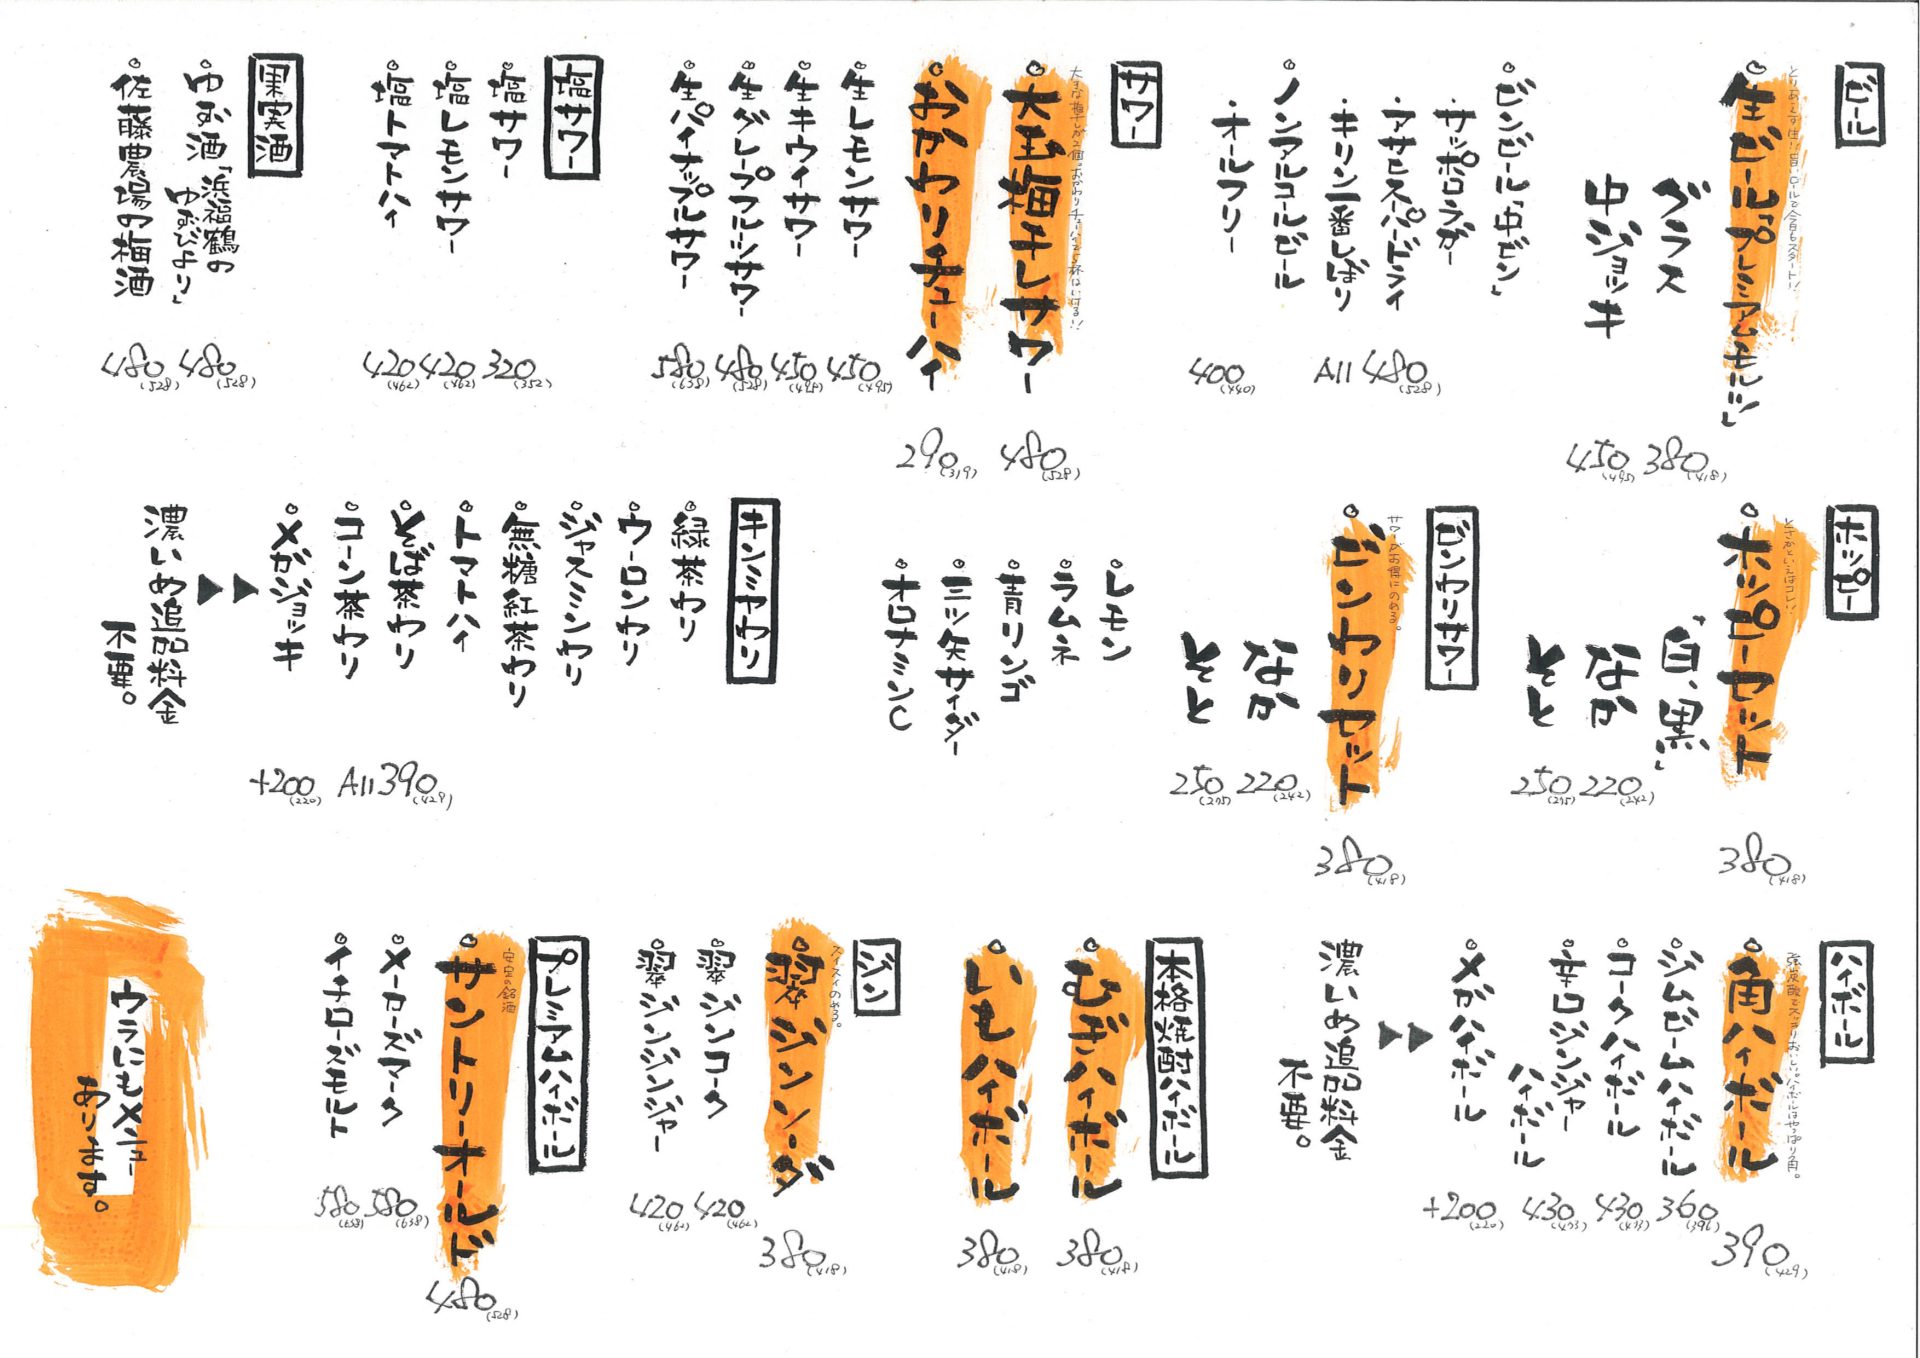 ビール
とりあえず生!!旨いビールで今日もスタート!!
生ビール「プレミアムモルツ」
グラス 380(418)
中ジョッキ 450(495)
ビンビール「中ビン」
・サッポロラガー
・アサヒスーパードライ
・キリン一番しぼり
All 480(528)
ノンアルコールビール
・オールフリー 400(440)
サワー
大きな梅干しが2個。おかわりチューハイで5杯はいける!!
大玉梅干しサワー 480(528)
おかわりチューハイ 290(319)
生レモンサワー 450(495)
生キウイサワー 450(495)
生グレープフルーツサワー 480(528)
生パイナップルサワー 580(638)
塩サワー
塩サワー 320(352)
塩レモンサワー 420(462)
塩トマトハイ 420(462)
果実酒
ゆず酒「浜福鶴の
ゆずびより」 480(528)
佐藤農場の梅酒 480(528)
ホッピー
ホッピーセット 380(418)
「白、黒」
なか 220(242)
そと 250(275)
ビンワリサワー
ビンワリセット 380(418)
なか 220(242)
そと 250(275)
レモン
ラムネ
青リンゴ
三ツ矢サイダー
オロナミンC
キンミヤワリ
緑茶ワリ
ウーロンワリ
ジャスミンワリ
無糖紅茶ワリ
トマトハイ
そば茶ワリ
コーン茶ワリ
All 390(429)
メガジョッキ +200(220)
濃いめ追加料金
不要。
ハイボール
強炭酸でスッキリおいしい。ハイボールはやっぱり角。
角ハイボール 390(429)
ジムビームハイボール 360(396)
コークハイボール 430(473)
辛口ジンジャー
ハイボール 430(473)
メガハイボール +200(220)
濃いめ追加料金
不要。
本格焼酎ハイボール
むぎハイボール 380(418)
いもハイボール 380(418)
ジン
スイスイのめる。
翠ジンソーダ 380(418)
翠ジンコーク 420(462)
翠ジンジンジャー 420(462)
プレミアムハイボール
安定の銘酒
サントリーオールド 480(528)
メーカーズマーク 580(638)
イチローズモルト 580(638)
ウラにもメニュー
あります。